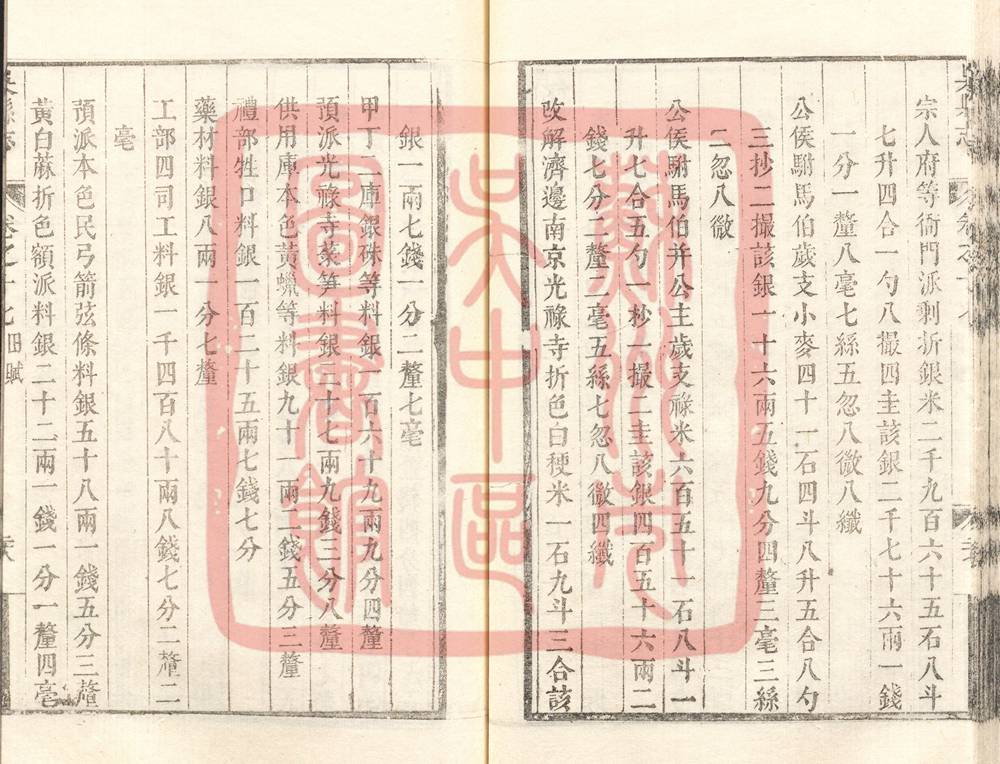 宗人府等衙門派剩折銀米二千九百六十五石八斗
七升四合一勺八撮四圭該銀二千七十六兩一錢
一分一釐八毫七絲五忽八微八纖
公侯駙馬伯歲支小麥四十一石四斗八升五合八勺
三抄二撮該銀一十六兩五錢九分四釐三毫三絲
二忽八微
公侯駙馬伯并公主歲支祿米六百五十一石八斗一
升七合五勺一抄一撮二圭該銀四百五十六兩二
錢七分二釐二毫五絲七忽八微四纖
改解濟邊南京光祿寺折色白粳米一石九斗三合該
銀一兩七錢一分二釐七毫
甲丁二庫銀硃等料銀一百六十九兩九分四釐
預派光祿寺菉笋料銀二十七兩九錢三分八釐
供用庫本色黃蠟等料銀九十一兩二錢五分三釐
禮部牲口料銀一百二十五兩七錢七分
藥材料銀八兩一分七釐
工部四司工料銀一千四百八十兩八錢七分二釐二
毫
預派本色民弓箭弦條料銀五十八兩一錢五分三釐
黃白蔴折色額派料銀二十二兩一錢一分一釐四毫
卷之十七 田賦
吳中區
圖書館